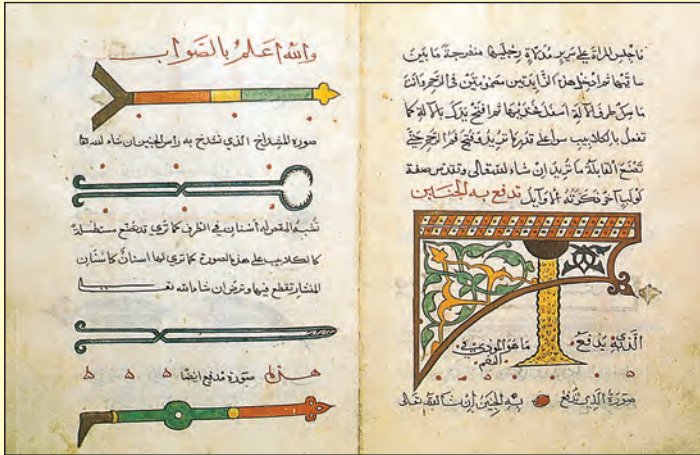 فاجلس المراة على سرير مدلاة رجليها منفرجة ما بين
ساقيها ثم ادخل هذين الزايدتين مضمومتين في الرحم وانت
ماسك طرف الالة اسفل فخذيها ثم افتح يدك بالالة كما
تفعل بالكلاليب سوا على قدر ما تريد فتح فم الرحم حتى
تصنع القابلة ما تريد ان شاء الله تعالى وتقدس صفة
لولب آخر ذكرته الاوايل تدفع به الجنين
الذي يدفع ما هو في
الفم
صورة الذي تدفع به الجنين ان شا الله تعالى
والله اعلم بالصواب
صورة المشداخ الذي تشدخ به راس الجنين ان شاء الله
تشبه المقص له أسنان في الطرف كما تري قد تصنع مستطيلة
كالكلاليب على هذه الصورة كما تري لها اسنان كاسنان
المنشار تقطع فيها وترض ان شاء الله تعالى
صورة مدفع ايضا